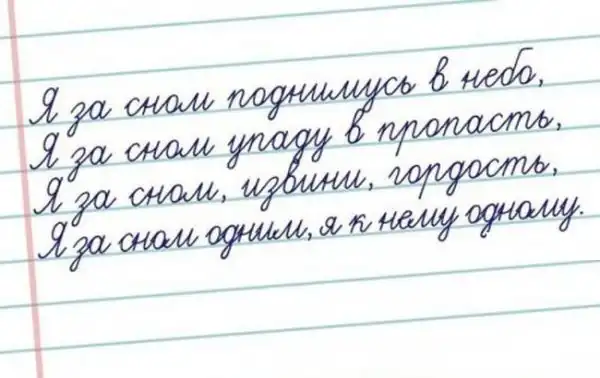 Я за сном поднимусь в небо,
Я за сном упаду в пропасть,
Я за сном, извини, гордость,
Я за сном одним, я к нему одному.